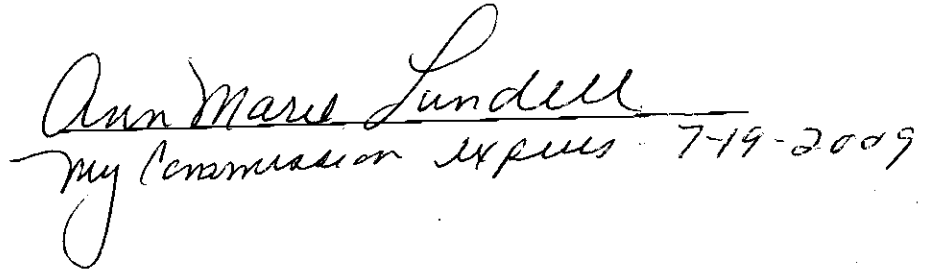 Ann Marie Lundell
My Commission expires 7-19-2009